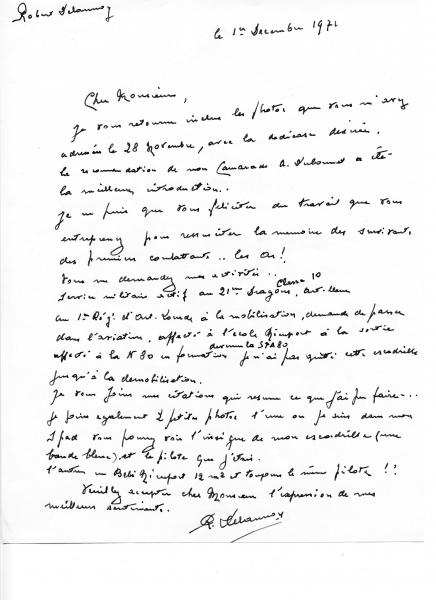 Robert Delannoy
le 1er Decembre 1971
Cher Monsieur,
Je vous retourne inclus les photos que vous m'avez
adressées le 28 Novembre, avec la dédicace désirée.
la recommandation de mon Camarade A. Dubonnet a été
la meilleure introduction..
Je ne puis que vous féliciter du travail que vous
entreprenez pour ressusciter la memoire des survivants
des premiers combattants.. les As!
Vous me demandez mes activités..
Service militaire actif au 21me Dragons, Classe 10
au 1er Rég. d'Art. Lourde à la mobilisation, demande de passer
dans l'aviation, affecté à l'école Nieuport à la sortie
affecté à la N 80 en formation devenue la SPA 80
je n'ai pas quitté cette escadrille
jusqu'à la demobilisation.
Je vous joins mes citations qui resume ce que j'ai pu faire...
je joins egalement 2 petites photos l'une ou je suis dans mon
Spad vous pourrez voir l'insigne de mon escadrille (une
bande bleue) et le pilote que j'étais.
l'autre un Bébé Nieuport 12 m2 et toujours le même pilote!!
Veuillez accepter cher Monsieur l'expression de mes
meilleurs sentiments.
R. Delannoy